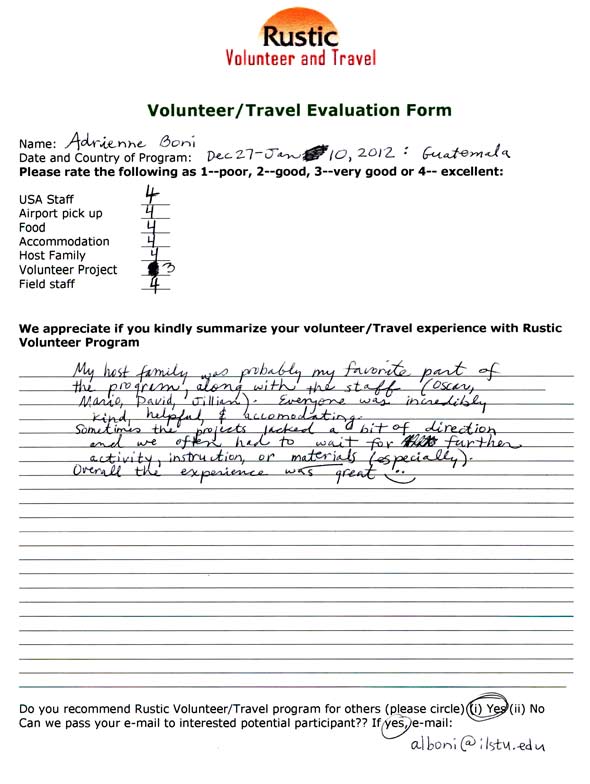 Rustic
Volunteer and Travel
Volunteer/Travel Evaluation Form
Name: Adrienne Boni
Date and Country of Program: Dec 27-Jan 10, 2012 : Guatemala
Please rate the following as 1--poor, 2--good, 3--very good or 4-- excellent:
USA Staff 4
Airport pick up 4
Food 4
Accommodation 4
Host Family 4
Volunteer Project 3
Field staff 4
We appreciate if you kindly summarize your volunteer/Travel experience with Rustic
Volunteer Program
My host family was probably my favorite part of
the program, along with the staff (Oscar,
Mario, David, Jillian). Everyone was incredibly
kind, helpful & accomodating.
Sometimes the projects lacked a bit of direction
and we often had to wait for further
activity, instruction, or materials (especially).
Overall the experience was great
Do you recommend Rustic Volunteer/Travel program for others (please circle) (i) Yes (ii) No
Can we pass your e-mail to interested potential participant?? If yes, e-mail:
alboni@ilstu.edu